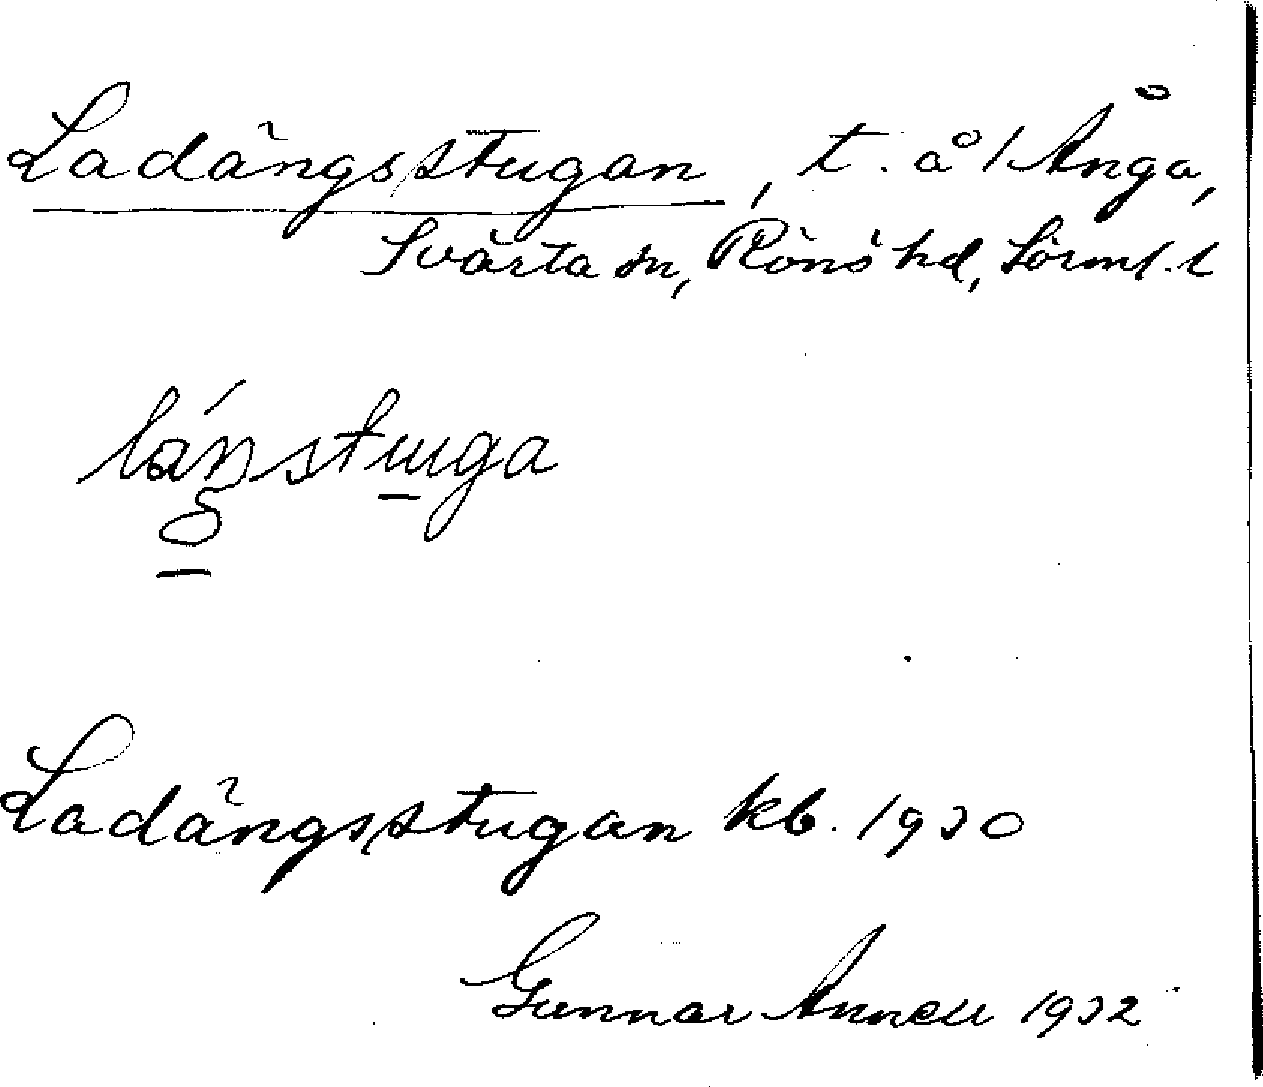 Ladängsstugan, t. å / Ånga,
Svärta sn, Rönö hd, Sörml. l
Ladängsstugan kb. 1930
Gunnar Annell 1932